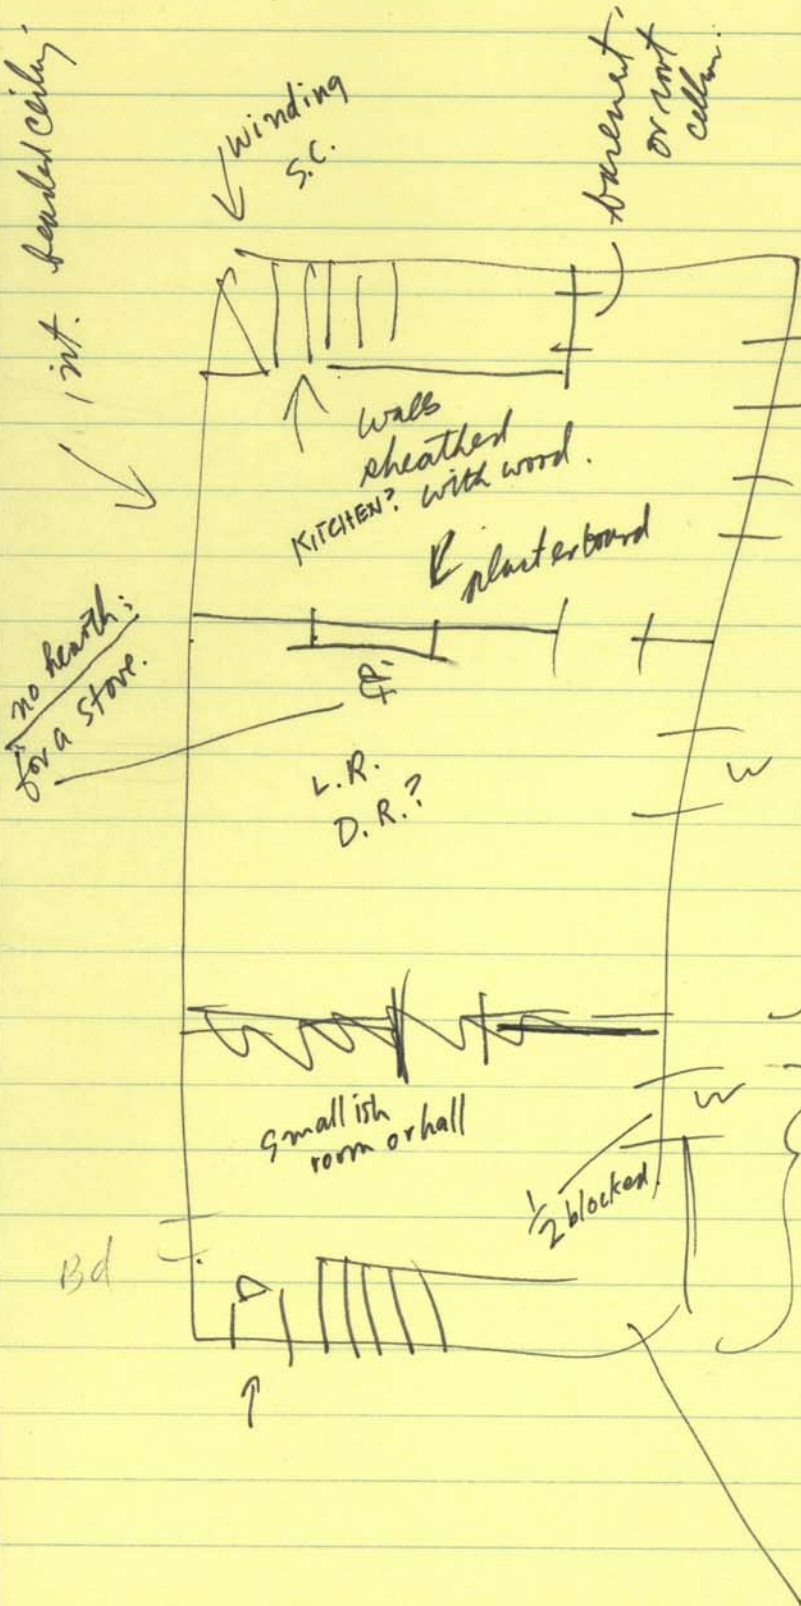 int. beaded ceiling
winding
S.C.
basement,
or root
cellar.
walls
sheathed
KITCHEN? with wood.
plasterboard
no hearth:
for a stove.
F.P.
L.R.
D.R.?
W
smallish
room or hall
W
1/2 blocked
Bd
D